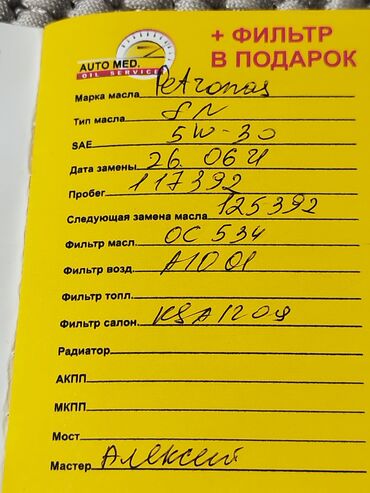 + ФИЛЬТР
В ПОДАРОК
AUTO MED.
OIL SERVICE
Марка масла Petronas
Тип масла SN
SAE 5W-30
Дата замены 26.06 21
Пробег 117392
Следующая замена масла 125392
Фильтр масл. OC 534
Фильтр возд. A1001
Фильтр топл.
Фильтр салон.
Радиатор
АКПП
МКПП
Мост
Мастер Алексей